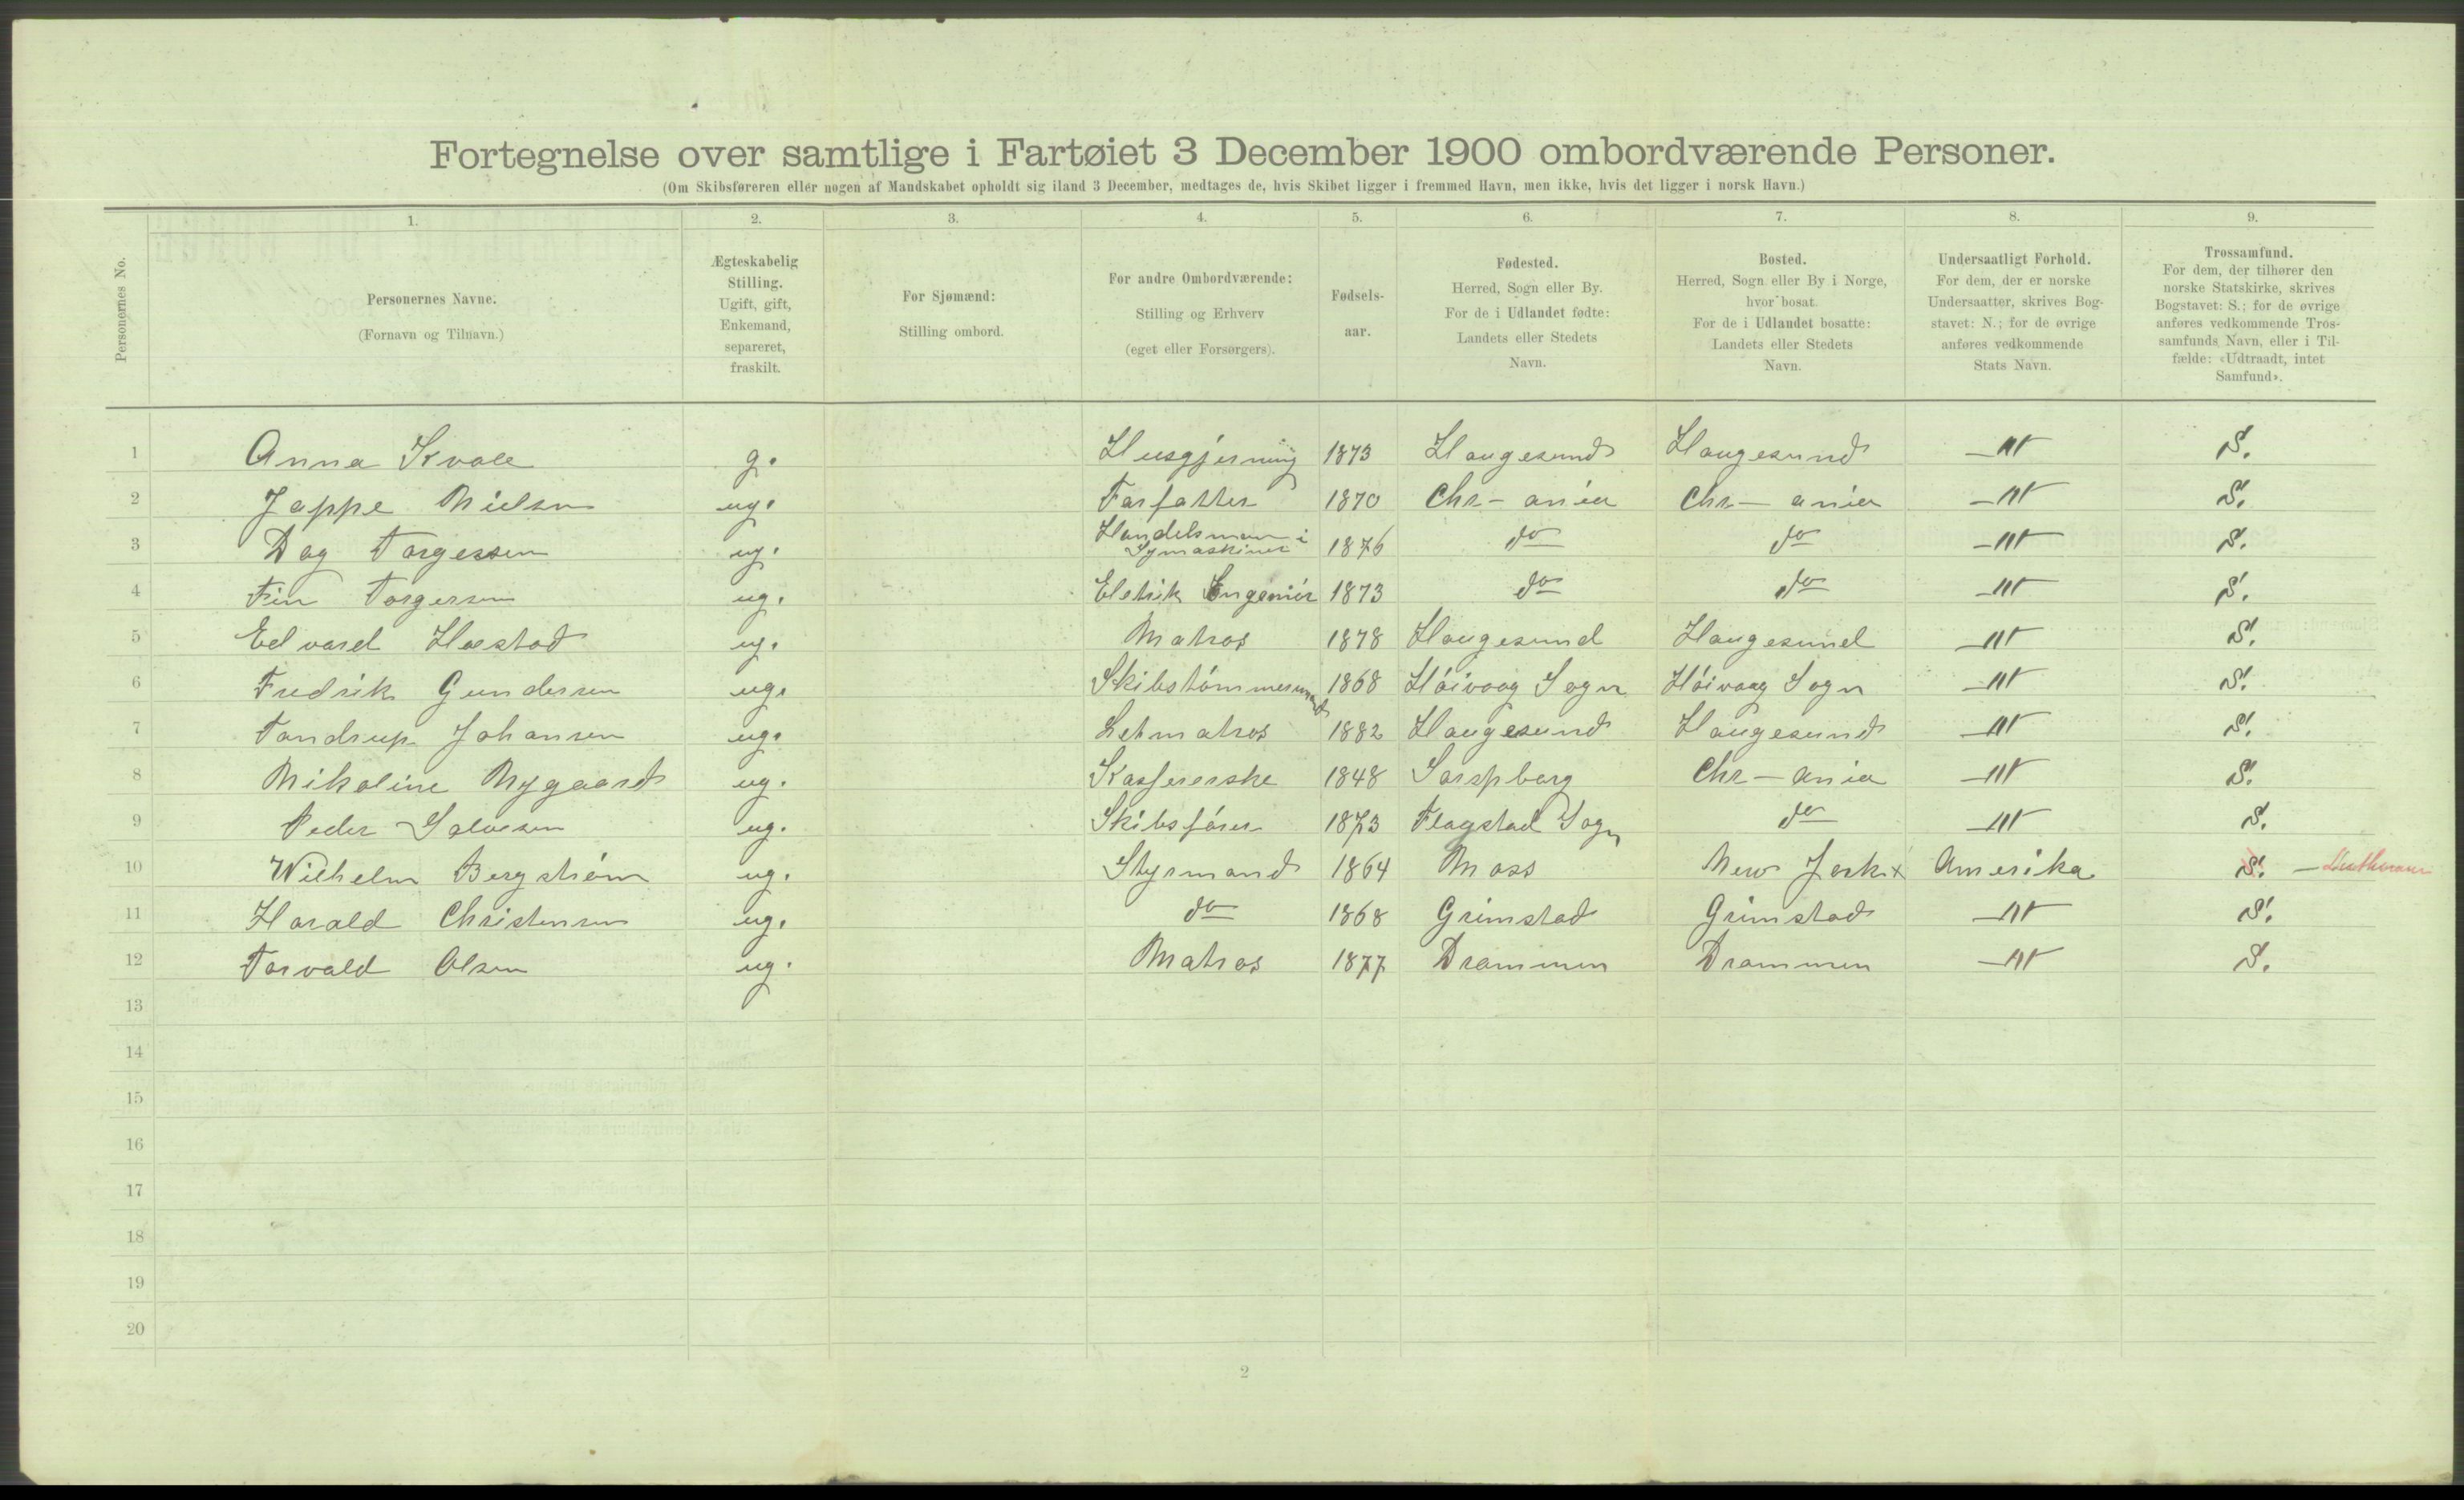 Fortegnelse over samtlige i Fartøiet 3 December 1900 ombordværende Personer.
(Om Skibsføreren eller nogen af Mandskabet opholdt sig iland 3 December, medtages de, hvis Skibet ligger i fremmed Havn, men ikke, hvis det ligger i norsk Havn.)
1. 2. 3. 4. 5. 6. 7. 8. 9.
Personernes No.
Personernes Navne.
(Fornavn og Tilnavn.)
Ægteskabelig
Stilling.
Ugift, gift,
Enkemand,
separeret,
fraskilt.
For Sjømænd:
Stilling ombord.
For andre Ombordværende:
Stilling og Erhverv
(eget eller Forsørgers).
Fødsels-
aar.
Fødested.
Herred, Sogn eller By.
For de i Udlandet fødte:
Landets eller Stedets
Navn.
Bosted.
Herred, Sogn eller By i Norge,
hvor bosat.
For de i Udlandet bosatte:
Landets eller Stedets
Navn.
Undersaatligt Forhold.
For dem, der er norske
Undersaatter, skrives Bog-
stavet: N.; for de øvrige
anføres vedkommende
Stats Navn.
Trossamfund.
For dem, der tilhører den
norske Statskirke, skrives
Bogstavet: S.; for de øvrige
anføres vedkommende Tros-
samfunds Navn, eller i Til-
fælde: «Udtraadt, intet
Samfund».
1 Anna Kvale g. Husgjerning 1873 Haugesund Haugesund N S.
2 Jappe Nielsen ug. Forfatter 1870 Chr-ania Chr-ania N S.
3 Dag Torgersen ug. Handelsman i Symaskiner 1876 do do N S.
4 Fin Torgersen ug. Eletrik Ingeniór 1873 do do N S.
5 Edvard Hastad ug. Matros 1878 Haugesund Haugesund N S.
6 Fredrik Gundersen ug. Skibstómmermand 1868 Hóivaag Sogn Hóivaag Sogn N S.
7 Tandrup Johansen ug. Letmatros 1882 Haugesund Haugesund N S.
8 Nikoline Nygaard ug. Kassererske 1848 Sarpsborg Chr-ania N S.
9 Peder Salvesen ug. Skibsfórer 1873 Flagstad Sogn do N S.
10 Wilhelm Bergstróm ug. Styrmand 1864 Moss New Jork x Amerika S.
11 Harald Christensen ug. do 1868 Grimstad Grimstad N S.
12 Torvald Olsen ug. Matros 1877 Drammen Drammen N S.
13
14
15
16
17
18
19
20
2